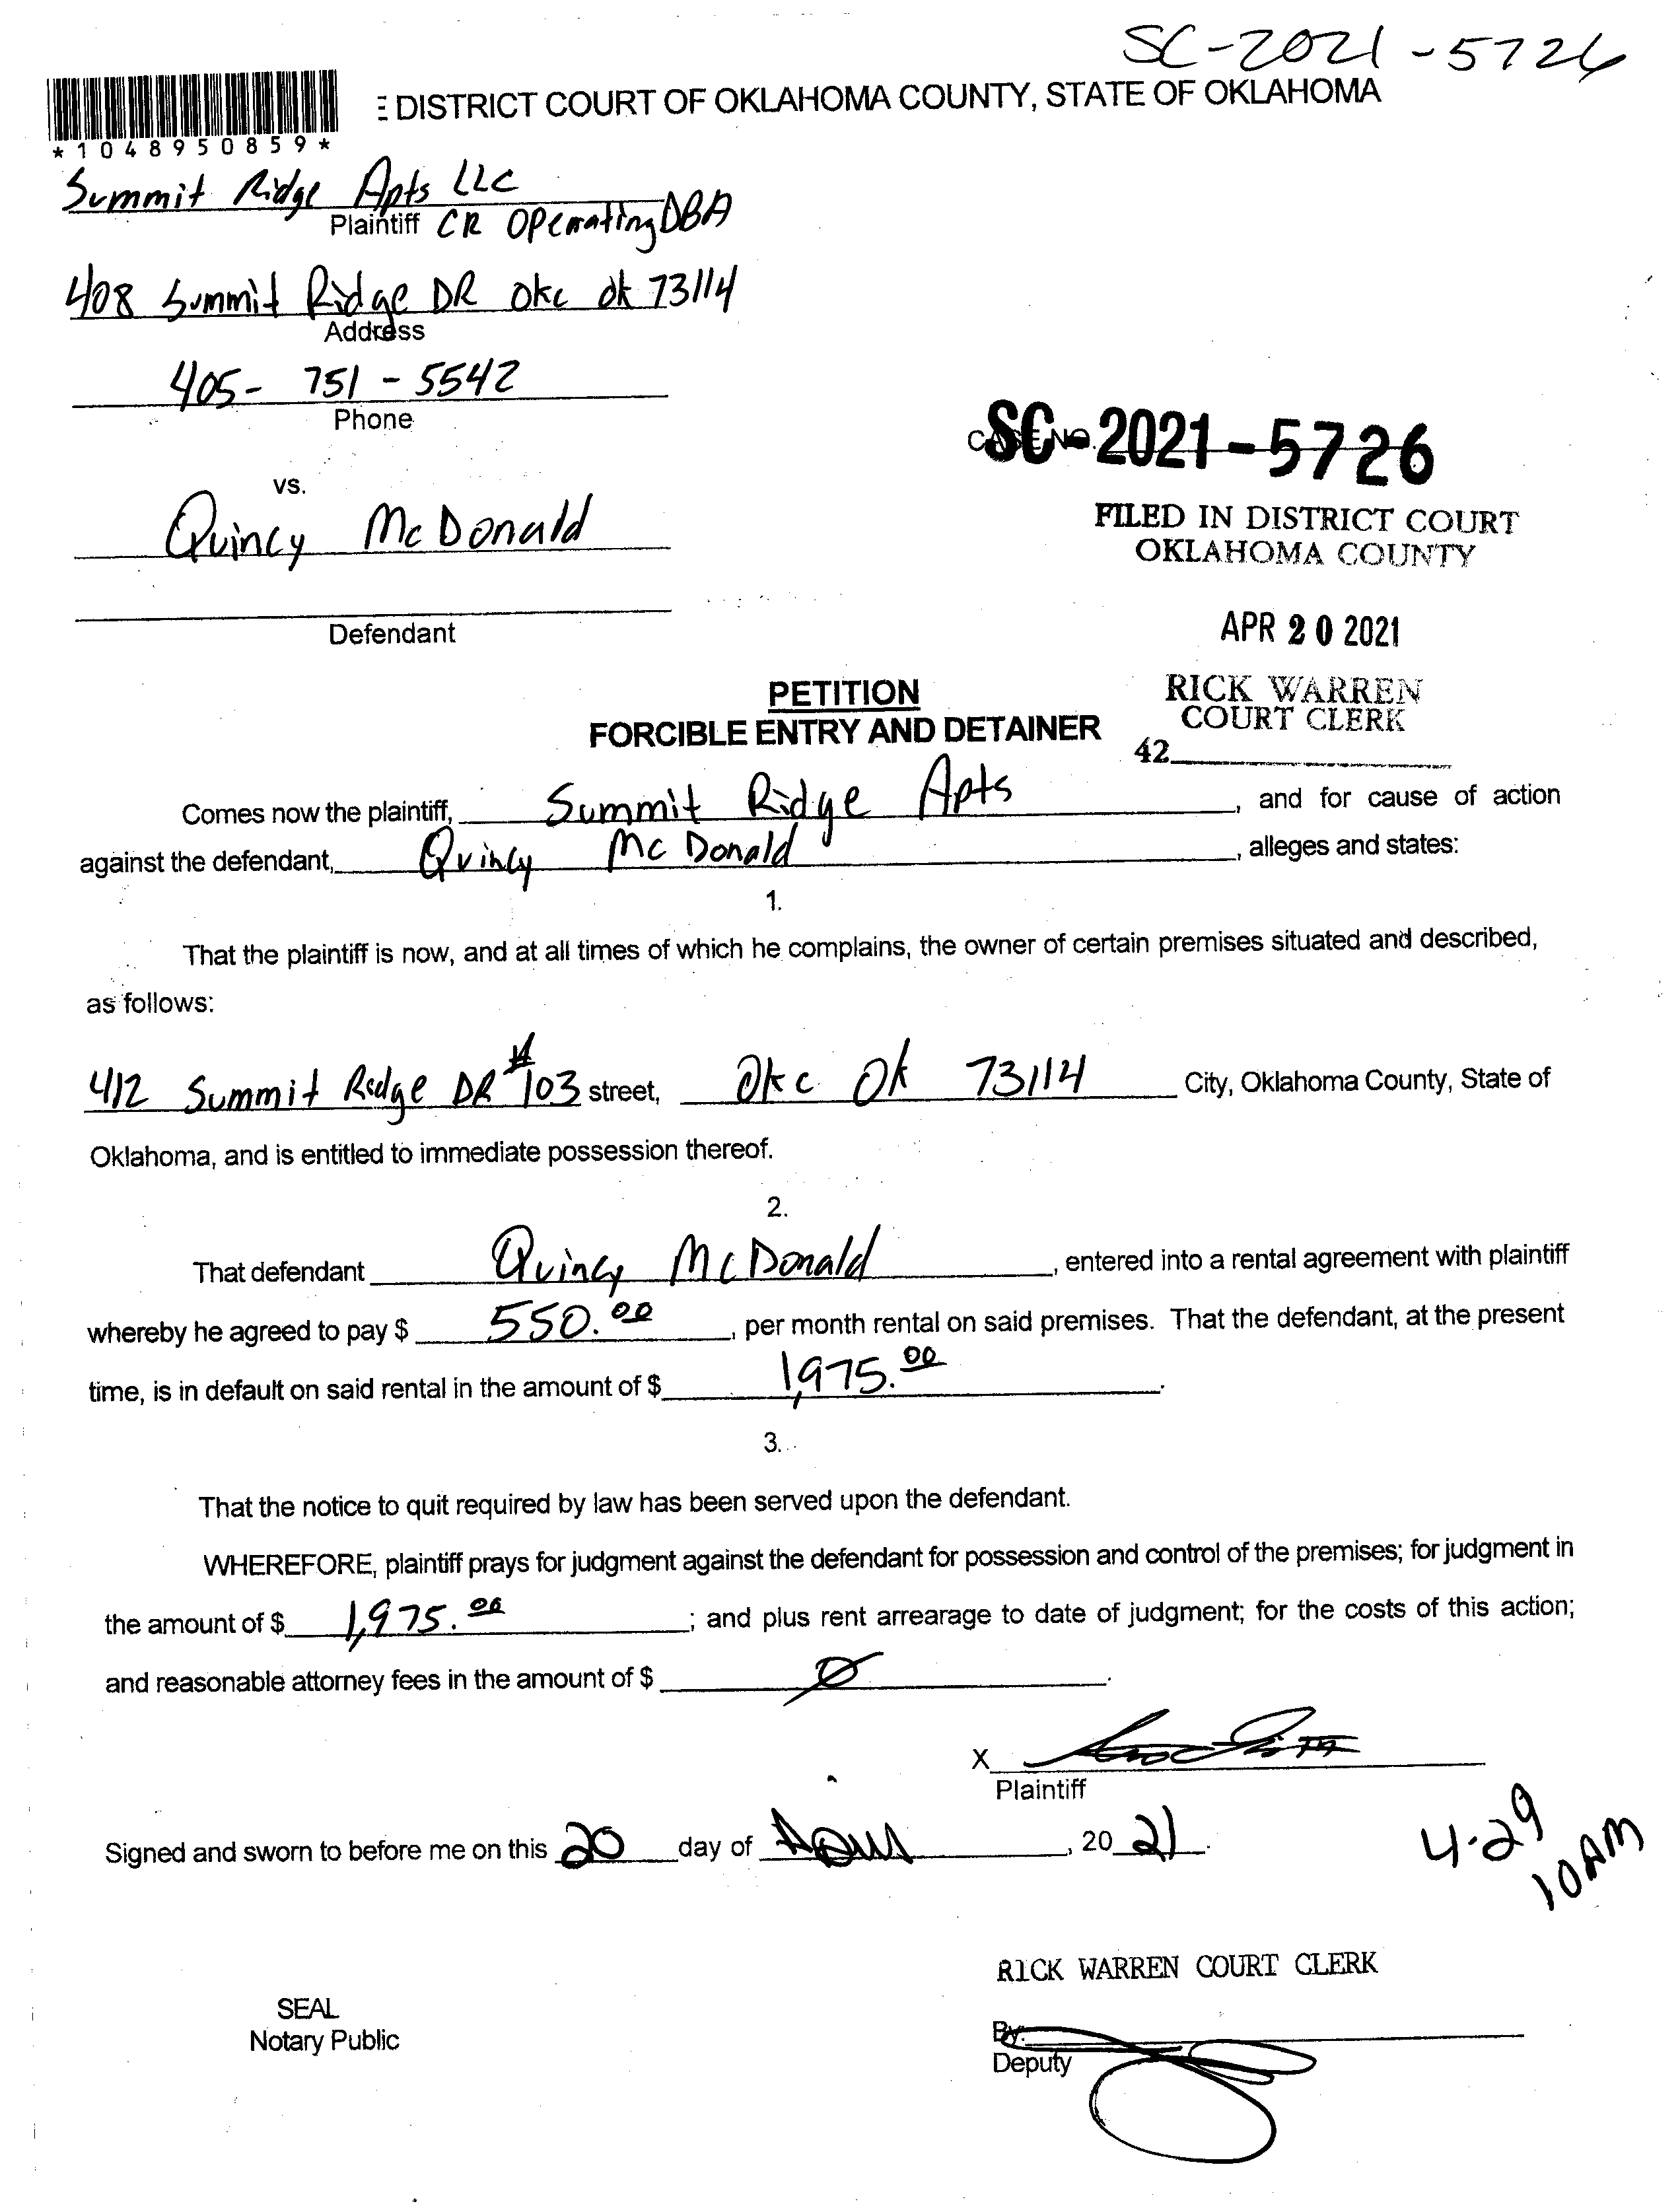 SC-2021-5726
E DISTRICT COURT OF OKLAHOMA COUNTY, STATE OF OKLAHOMA
*1048950859*
Summit Ridge Apts LLC
Plaintiff CR Operating DBA
408 Summit Ridge DR Okc Ok 73114
Address
405- 751-5542
Phone
CASE NO. SC-2021-5726
vs.
FILED IN DISTRICT COURT
OKLAHOMA COUNTY
Quincy McDonald
Defendant
APR 20 2021
RICK WARREN
COURT CLERK
42
PETITION
FORCIBLE ENTRY AND DETAINER
Comes now the plaintiff, Summit Ridge Apts, and for cause of action
against the defendant, Quincy McDonald, alleges and states:
1.
That the plaintiff is now, and at all times of which he complains, the owner of certain premises situated and described,
as follows:
412 Summit Ridge DR #103 street, Okc Ok 73114 City, Oklahoma County, State of
Oklahoma, and is entitled to immediate possession thereof.
2.
That defendant Quincy McDonald, entered into a rental agreement with plaintiff
whereby he agreed to pay $ 550.00, per month rental on said premises. That the defendant, at the present
time, is in default on said rental in the amount of $ 1,975.00.
3.
That the notice to quit required by law has been served upon the defendant.
WHEREFORE, plaintiff prays for judgment against the defendant for possession and control of the premises; for judgment in
the amount of $ 1,975.00; and plus rent arrearage to date of judgment; for the costs of this action;
and reasonable attorney fees in the amount of $ Ø.
X
Plaintiff
Signed and sworn to before me on this 20 day of April, 20 21.
4-29
10AM
RICK WARREN COURT CLERK
SEAL
Notary Public
By:
Deputy